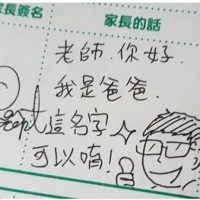 家長簽名 家長的話
老師.你好
我是爸爸.
這名字
可以唷!